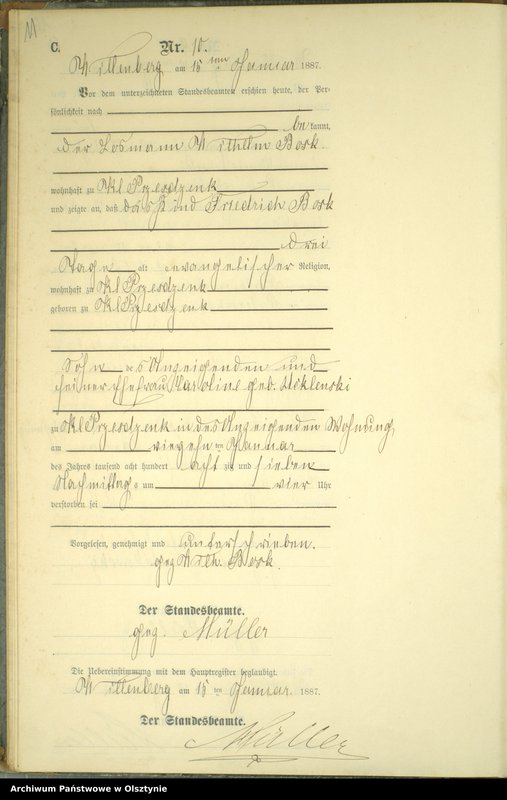 M
C.
Nr. 10.
Willenberg am 15 ten Januar 1887.
Vor dem unterzeichneten Standesbeamten erschien heute, der Per-
sönlichkeit nach
be kannt,
der Losmann Wilhelm Bork.
wohnhaft zu Kl Przesdzenk
und zeigte an, daß das Kind Friedrich Bork
drei
Tage alt evangelischer Religion,
wohnhaft zu Kl Przesdzenk
geboren zu Kl Przesdzenk
Sohn des Anzeigenden und
seiner Ehefrau Karoline geb.
zu Kl Przesdzenk in des Anzeigenden Wohnung,
am vierzehn ten Januar
des Jahres tausend acht hundert acht zig und sieben
Nachmittag s um vier Uhr
verstorben sei
Vorgelesen, genehmigt und unterschrieben.
gez Wilh. Bork.
Der Standesbeamte.
gez. Müller
Die Uebereinstimmung mit dem Hauptregister beglaubigt.
Willenberg am 15 ten Januar. 1887.
Der Standesbeamte.
Müller
Archiwum Państwowe w Olsztynie